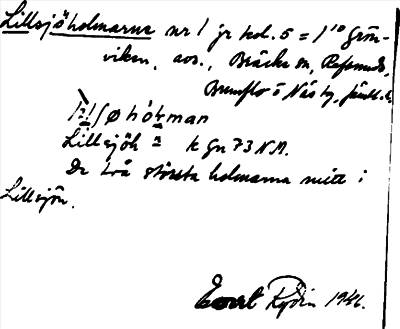 Lillsjöholmarna nr 1 jr kol. 5 = 1¹⁰ Grön-
viken, avs., Bräcke sn, Refsunds,
Brunflo o Näs tg, Jämtl. l.
holman
Lillsjöh k gn 73 NA.
De två största holmarna mitt i
Lillsjön.
Evert Rydin 1946.